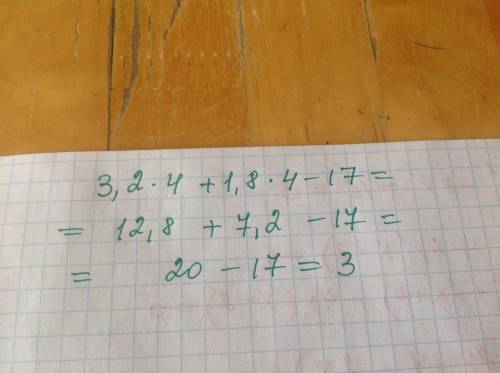 3,2 · 4 + 1,8 · 4 - 17 =
= 12,8 + 7,2 - 17 =
= 20 - 17 = 3